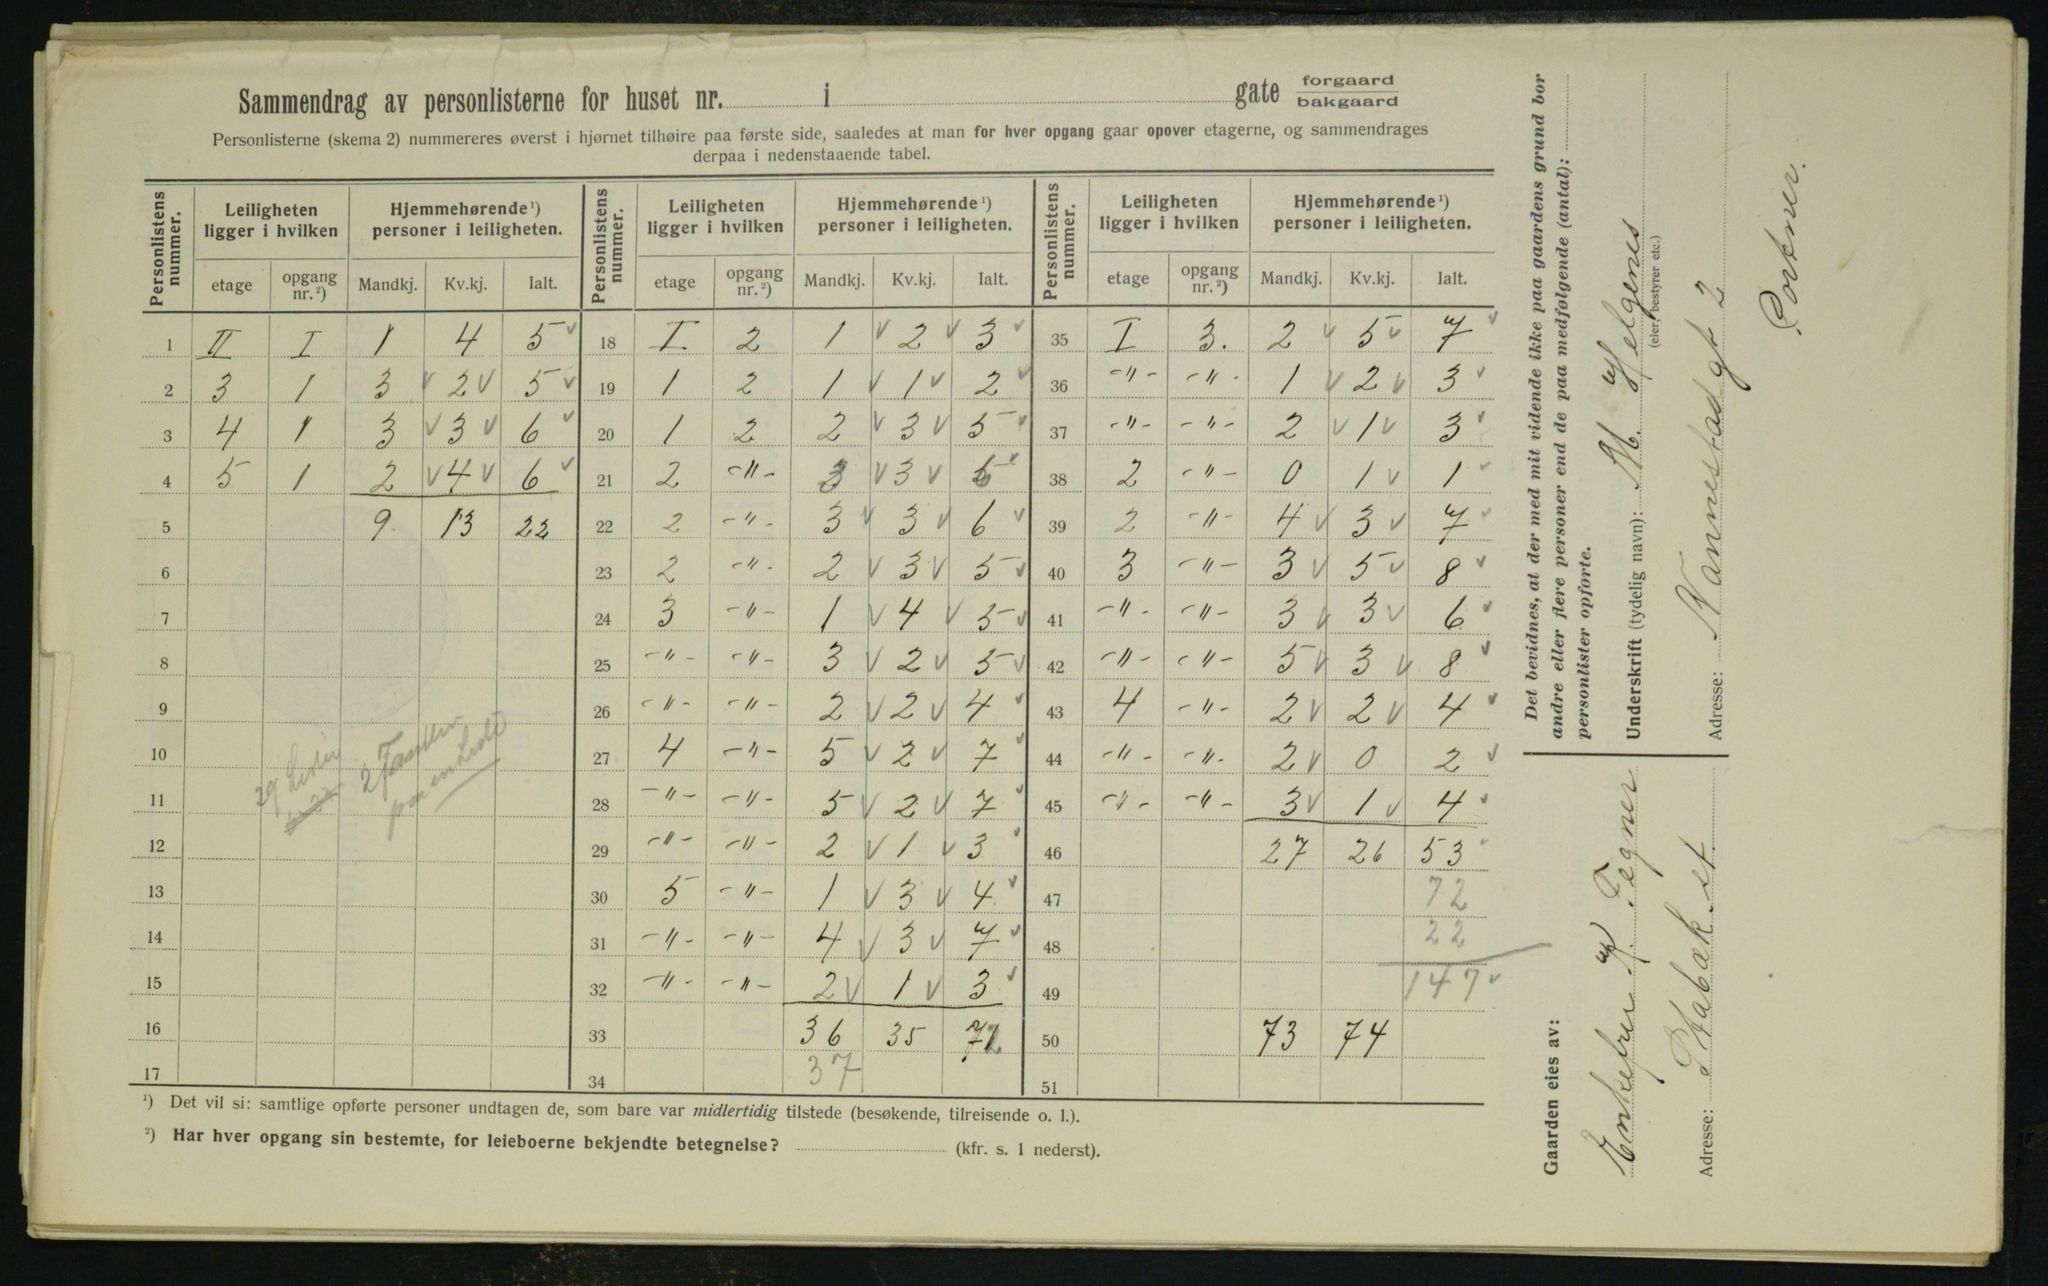 Sammendrag av personlisterne for huset nr. i gate forgaard bakgaard
Personlisterne (skema 2) nummereres øverst i hjørnet tilhøire paa første side, saaledes at man for hver opgang gaar opover etagerne, og sammendrages
derpaa i nedenstaaende tabel.
Personlistens nummer. Leiligheten ligger i hvilken Hjemmehørende ¹) personer i leiligheten. Personlistens nummer. Leiligheten ligger i hvilken Hjemmehørende ¹) personer i leiligheten. Personlistens nummer. Leiligheten ligger i hvilken Hjemmehørende ¹) personer i leiligheten.
etage opgang nr. ²) Mandkj. Kv.kj. Ialt. etage opgang nr. ²) Mandkj. Kv.kj. Ialt. etage opgang nr. ²) Mandkj. Kv.kj. Ialt.
1 II I 1 4 5 18 I 2 1 2 3 35 I 3. 2 5 7
2 3 1 3 2 5 19 1 2 1 1 2 36 -"- -"- 1 2 3
3 4 1 3 3 6 20 1 2 2 3 5 37 -"- -"- 2 1 3
4 5 1 2 4 6 21 2 -"- 3 3 6 38 2 -"- 0 1 1
5 9 13 22 22 2 -"- 3 3 6 39 2 -"- 4 3 7
6 23 2 -"- 2 3 5 40 3 -"- 3 5 8
7 24 3 -"- 1 4 5 41 -"- -"- 3 3 6
8 25 -"- -"- 3 2 5 42 -"- -"- 5 3 8
9 26 -"- -"- 2 2 4 43 4 -"- 2 2 4
10 27 4 -"- 5 2 7 44 -"- -"- 2 0 2
11 28 -"- -"- 5 2 7 45 -"- -"- 3 1 4
12 29 -"- -"- 2 1 3 46 27 26 53
13 30 5 -"- 1 3 4 47 72
14 31 -"- -"- 4 3 7 48 22
15 32 -"- -"- 2 1 3 49 147
16 33 36 35 72 50 73 74
17 34 37 51
29 Lister
2 Familier
paa en Liste
¹) Det vil si: samtlige opførte personer undtagen de, som bare var midlertidig tilstede (besøkende, tilreisende o. l.).
²) Har hver opgang sin bestemte, for leieboerne bekjendte betegnelse? (kfr. s. 1 nederst).
Det bevidnes, at der med mit vidende ikke paa gaardens grund bor
andre eller flere personer end de paa medfølgende (antal):
personlister opførte.
Underskrift (tydelig navn): M. Helgenes
(eier, bestyrer etc.)
Adresse: Nannestadgt 2
Portner.
Gaarden eies av:
Enkefru R. Tegner
Adresse: Stabæk st.